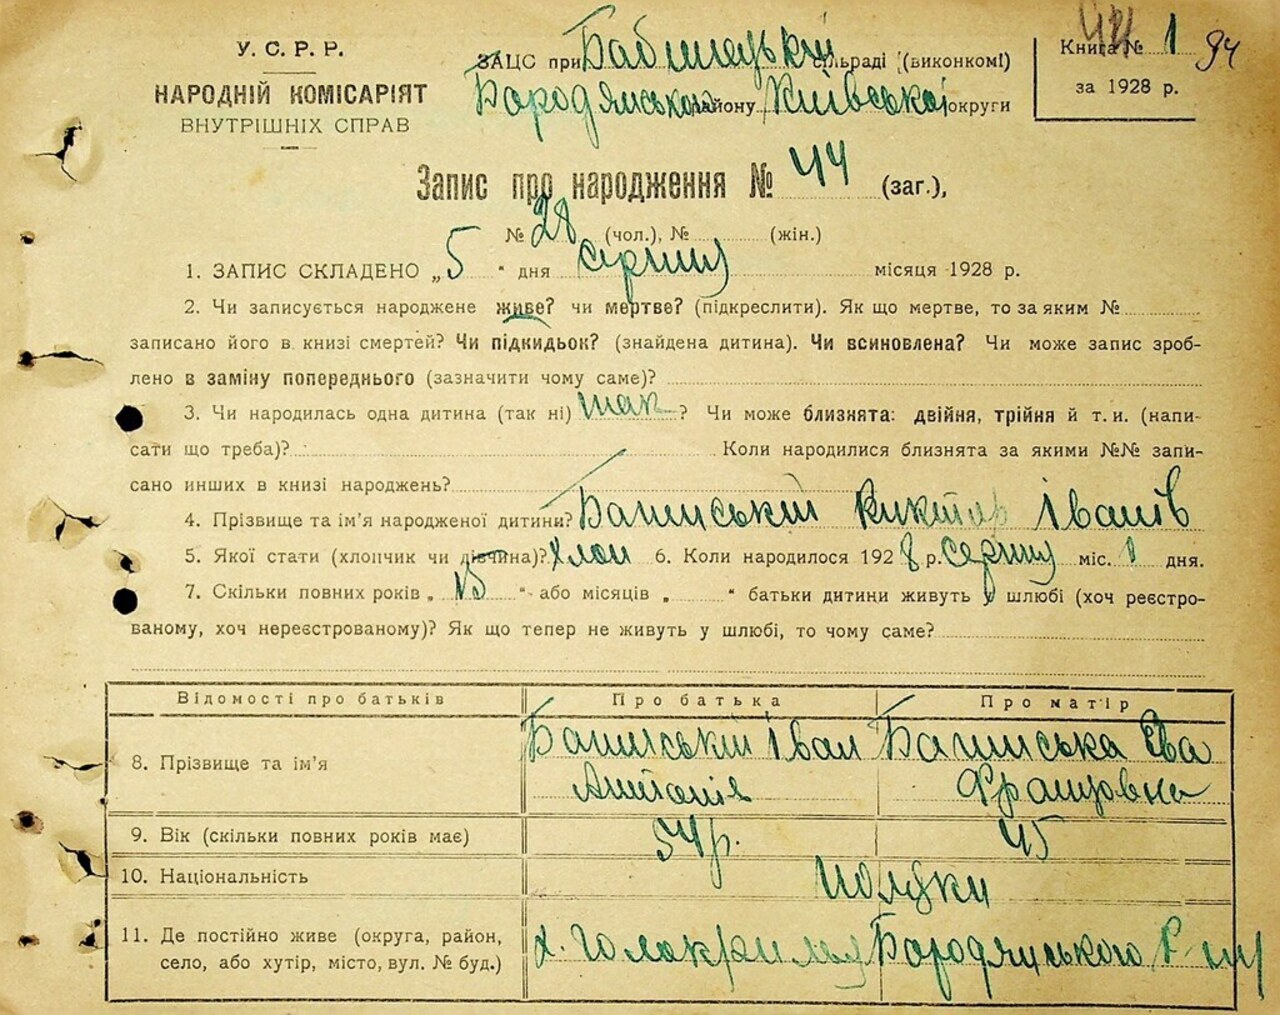 У. С. Р. Р.
НАРОДНІЙ КОМІСАРІЯТ
ВНУТРІШНІХ СПРАВ
ЗАЦС при Бабинецькій сільраді (виконкомі)
Бородянського району Київської округи
Книга № 1 94
за 1928 р.
Запис про народження № 44 (заг.),
№ 28 (чол.), № (жін.)
1. ЗАПИС СКЛАДЕНО „5“ дня серпня місяця 1928 р.
2. Чи записується народжене живе? чи мертве? (підкреслити). Як що мертве, то за яким №
записано його в книзі смертей? Чи підкидьок? (знайдена дитина). Чи всиновлена? Чи може запис зроб-
лено в заміну попереднього (зазначити чому саме)?
3. Чи народилась одна дитина (так ні) так? Чи може близнята: двійня, трійня й т. и. (напи-
сати що треба)? Коли народилися близнята за якими №№ запи-
сано инших в книзі народжень?
4. Прізвище та ім'я народженої дитини? Іванів
5. Якої стати (хлопчик чи дівчина)? хлоп 6. Коли народилося 1928 р. серпня міс. 1 дня.
7. Скільки повних років „15“ або місяців „ “ батьки дитини живуть у шлюбі (хоч реєстро-
ваному, хоч нереєстрованому)? Як що тепер не живуть у шлюбі, то чому саме?
Відомості про батьків Про батька Про матір
8. Прізвище та ім'я Іван Єва
Антонів Францовна
9. Вік (скільки повних років має) 54 р. 45
10. Національність поляки
11. Де постійно живе (округа, район,
село, або хутір, місто, вул. № буд.) х. Бородянського Р-ну